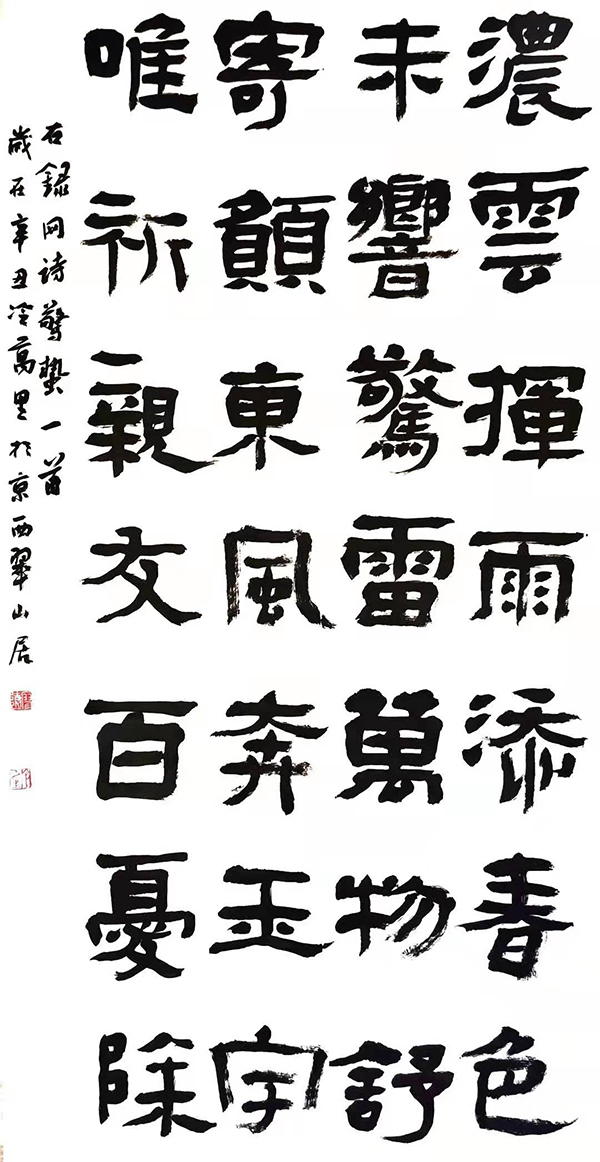 濃雲揮雨添春色
未響驚雷萬物舒
寄願東風奔玉宇
唯祈親友百憂除
右録网诗驚蟄一首
歲在辛丑冷萬里於京西翠山居